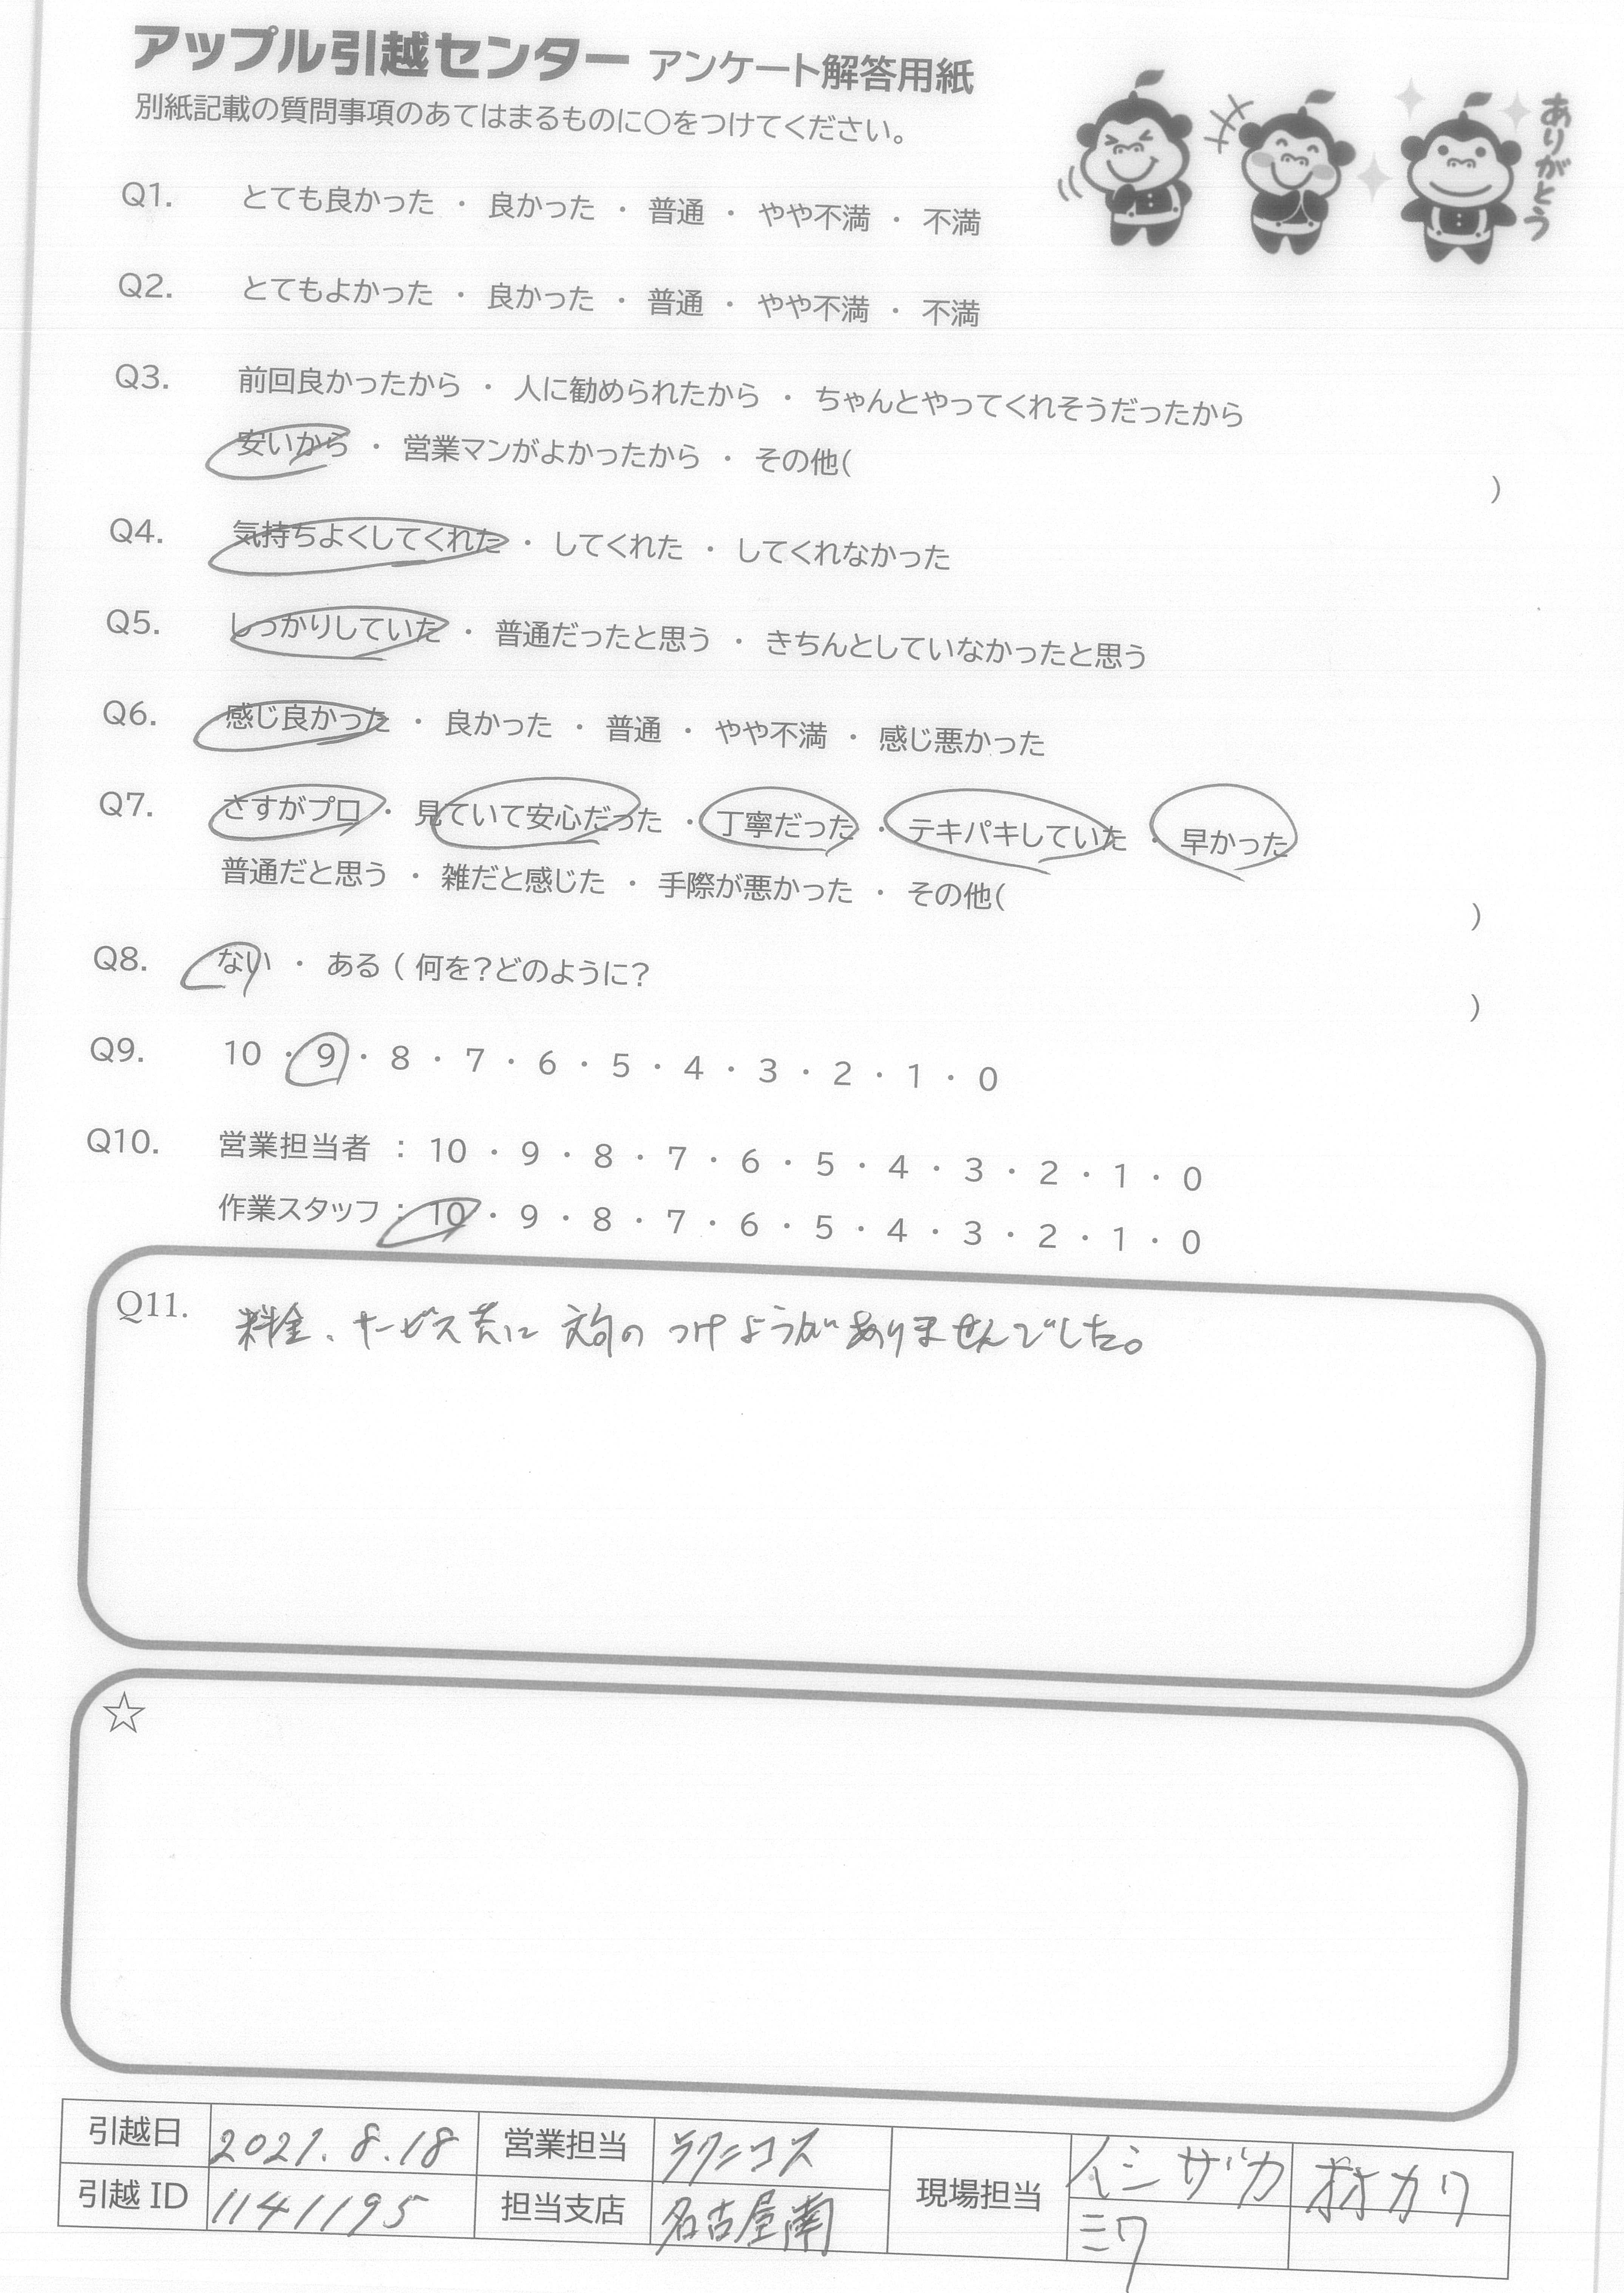 アップル引越センター アンケート解答用紙
別紙記載の質問事項のあてはまるものに〇をつけてください。
ありがとう
Q1. とても良かった ・ 良かった ・ 普通 ・ やや不満 ・ 不満
Q2. とてもよかった ・ 良かった ・ 普通 ・ やや不満 ・ 不満
Q3. 前回良かったから ・ 人に勧められたから ・ ちゃんとやってくれそうだったから
安いから ・ 営業マンがよかったから ・ その他( )
Q4. 気持ちよくしてくれた ・ してくれた ・ してくれなかった
Q5. しっかりしていた ・ 普通だったと思う ・ きちんとしていなかったと思う
Q6. 感じ良かった ・ 良かった ・ 普通 ・ やや不満 ・ 感じ悪かった
Q7. さすがプロ ・ 見ていて安心だった ・ 丁寧だった ・ テキパキしていた ・ 早かった
普通だと思う ・ 雑だと感じた ・ 手際が悪かった ・ その他( )
Q8. ない ・ ある ( 何を?どのように? )
Q9. 10 ・ 9 ・ 8 ・ 7 ・ 6 ・ 5 ・ 4 ・ 3 ・ 2 ・ 1 ・ 0
Q10. 営業担当者 : 10 ・ 9 ・ 8 ・ 7 ・ 6 ・ 5 ・ 4 ・ 3 ・ 2 ・ 1 ・ 0
作業スタッフ : 10 ・ 9 ・ 8 ・ 7 ・ 6 ・ 5 ・ 4 ・ 3 ・ 2 ・ 1 ・ 0
Q11. 料金、サービス共に 文句の つけようがありませんでした。
☆
引越日 2021.8.18 営業担当 ラクニコス 現場担当 イシザカ オオカワ
引越 ID 1141195 担当支店 名古屋南 ミワ